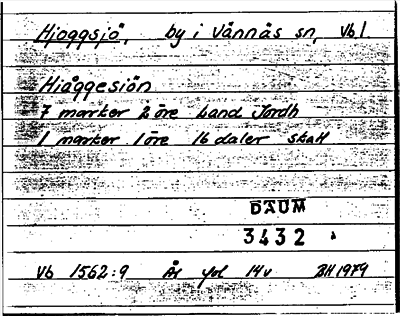 Hjoggsjö, by i Vännäs sn, Vbl.
Hiåggesiön
7 marker 2 öre Land Jordh
1 marker 1 öre 16 daler skatt
DAUM
3432
Vb 1562:9 År fol 14v BH 1979